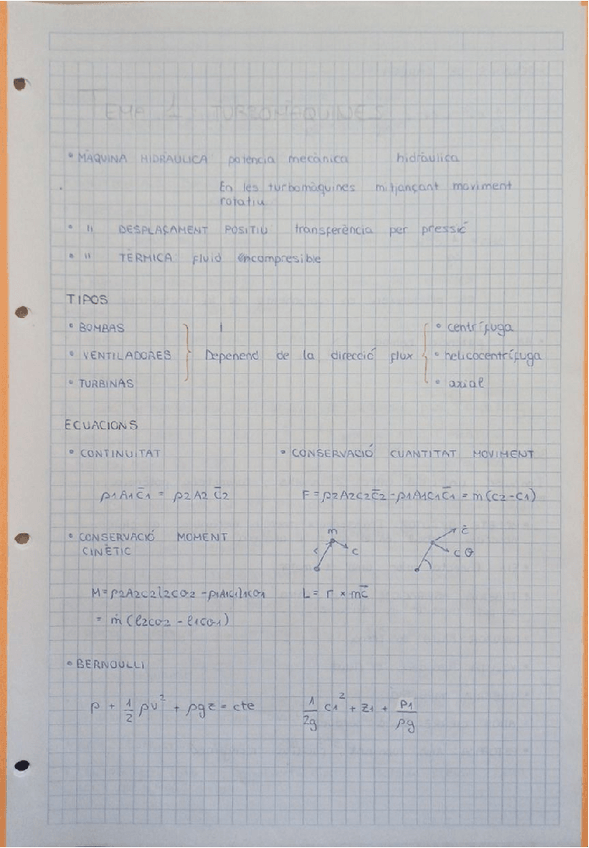 TEMA 1. TURBOMÀQUINES
• MÀQUINA HIDRÀULICA potència mecànica hidràulica
En les turbomàquines mitjançant moviment
rotatiu
• " DESPLAÇAMENT POSITIU transferència per pressió
• " TÈRMICA fluid incompresible
TIPOS
• BOMBAS
• VENTILADORES
• TURBINAS
Depenend de la direcció flux
• centrífuga
• helicocentrífuga
• axial
ECUACIONS
• CONTINUITAT
ρ1A1c̄1 = ρ2A2 c̄2
• CONSERVACIÓ CUANTITAT MOVIMENT
F = ρ2A2c2c̄2 - ρ1A1c1c̄1 = ṁ(c2-c1)
• CONSERVACIÓ MOMENT
CINÈTIC
M = ρ2A2c2l2cθ2 - ρ1A1c1l1cθ1
= ṁ(l2cθ2 - l1cθ1)
m
r
c
c̄
cθ
L = r × mc̄
• BERNOULLI
p + 1/2 ρv² + ρgz = cte
1/2g c1² + z1 + p1/ρg